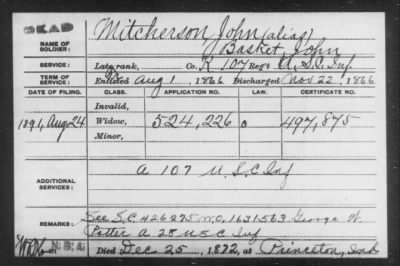 DEAD
NAME OF SOLDIER:
Mitcherson, John (alias)
Basket, John
SERVICE:
Late rank, Co. K, 107 Reg't U.S.C. Inf
TERM OF SERVICE:
Enlisted Aug 1, 1866 Discharged Nov 22, 1866
DATE OF FILING. CLASS. APPLICATION NO. CERTIFICATE NO.
Invalid,
1891, Aug 24 Widow, 524,226 497,875
Minor,
ADDITIONAL SERVICES:
A 107 U.S.C Inf
REMARKS:
See S.C. 426275 W.O. 1631563 George W.
Potter A 28 U S C Inf
Died Dec 25, 1872, at Princeton, Ind